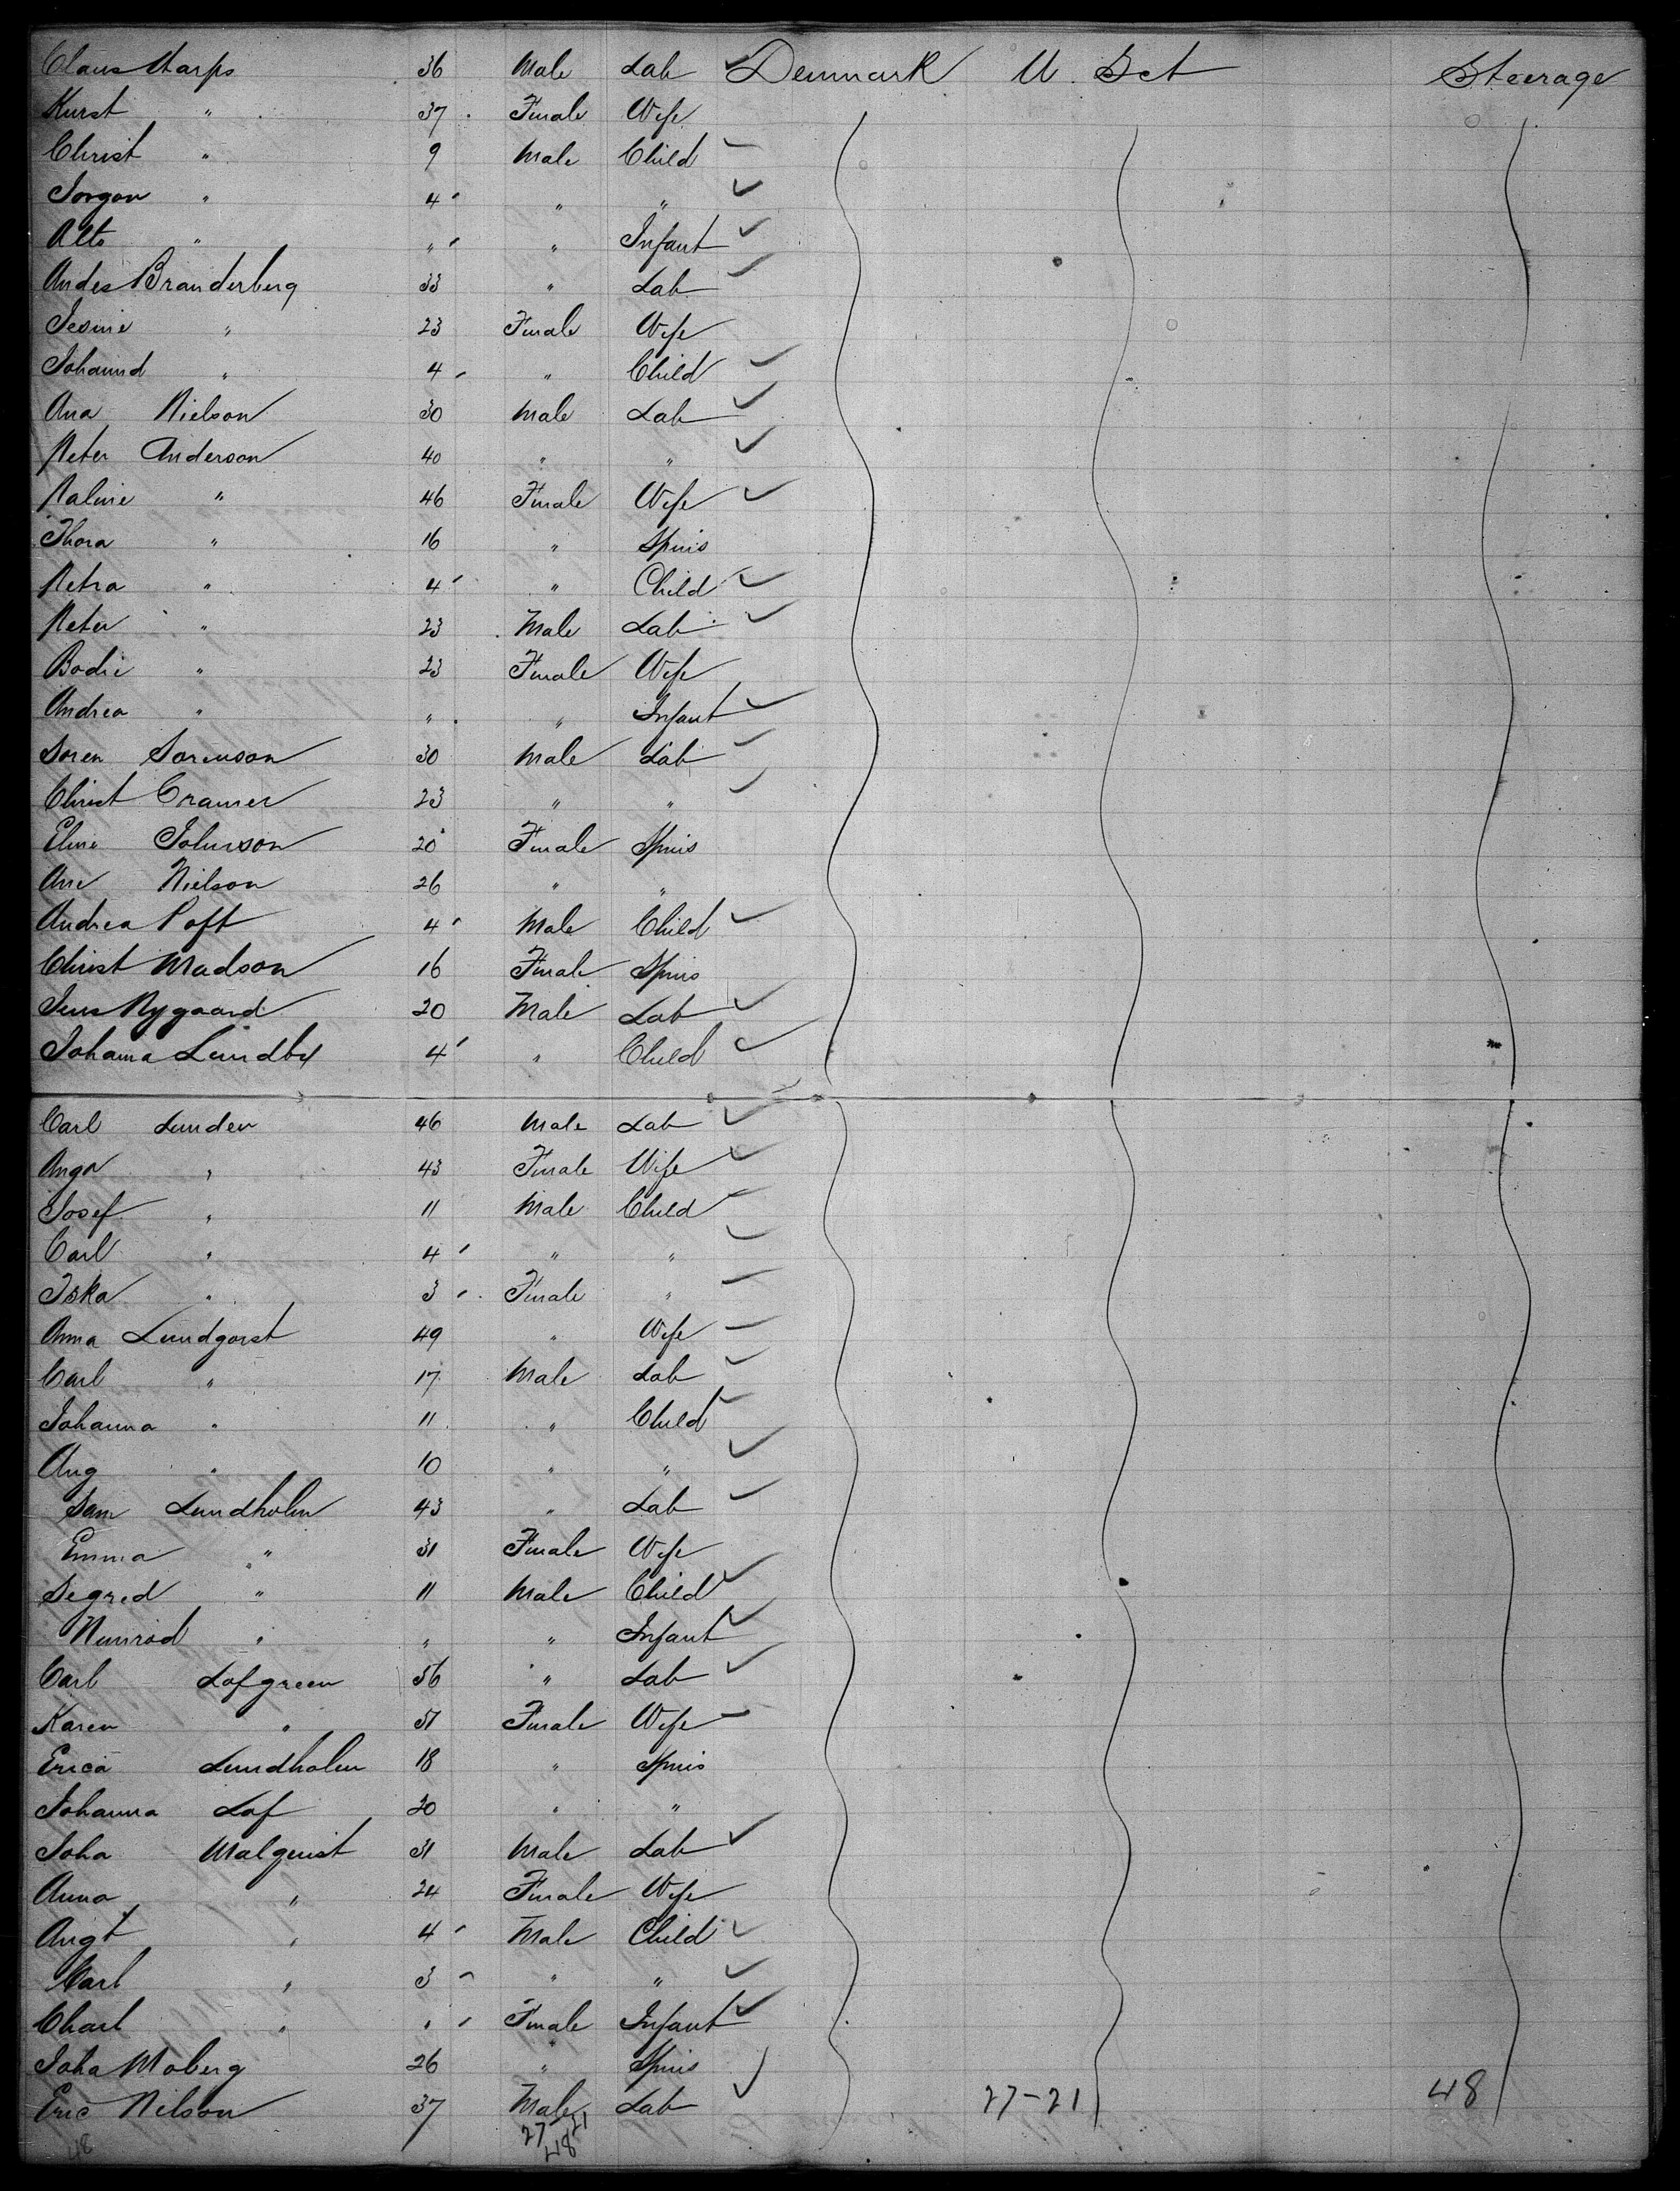 Claus Harps 36 Male Lab Denmark U. Sct Steerage
Kirst " 37 Female Wife
Christ " 9 Male Child
Jorgon " 4 " "
Alto " " " Infant
Andes Branderberg 33 " Lab
Jesine " 23 Female Wife
Johannd " 4 " Child
Ana Nielson 30 Male Lab
Peter Anderson 40 " "
Paline " 46 Female Wife
Thora " 16 " Spins
Petra " 4 " Child
Peter " 23 Male Lab
Bodie " 23 Female Wife
Andrea " " " Infant
Soren Sorenson 30 Male Lab
Christ Cramer 23 " "
Eline Johnson 20 Female Spins
Ane Nielson 26 " "
Andrea Poft 4 Male Child
Christ Madson 16 Female Spins
Jens Nygaard 20 Male Lab
Johanna Lundby 4 " Child
Carl Lunden 46 Male Lab
Anga " 43 Female Wife
Josef " 11 Male Child
Carl " 4 " "
Iska " 3 Female "
Anna Lundgorst 49 " Wife
Carl " 17 Male Lab
Johanna " 11 " Child
Aug " 10 " "
Sam Lundholm 43 " Lab
Emma " 31 Female Wife
Segred " 11 Male Child
Nimrod " " " Infant
Carl Lofgreen 56 " Lab
Karen " 51 Female Wife
Erica Lundholm 18 " Spins
Johanna Lof 20 " "
Joha Malquist 31 Male Lab
Anna " 24 Female Wife
Augt " 4 Male Child
Carl " 3 " "
Charl " " Female Infant
Joha Moberg 26 " Spins
Eric Nilson 37 Male Lab 27-21 48
27 21
48 48